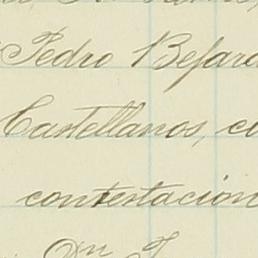 Pedro Befara
Castellanos, co
contestación
Dn J